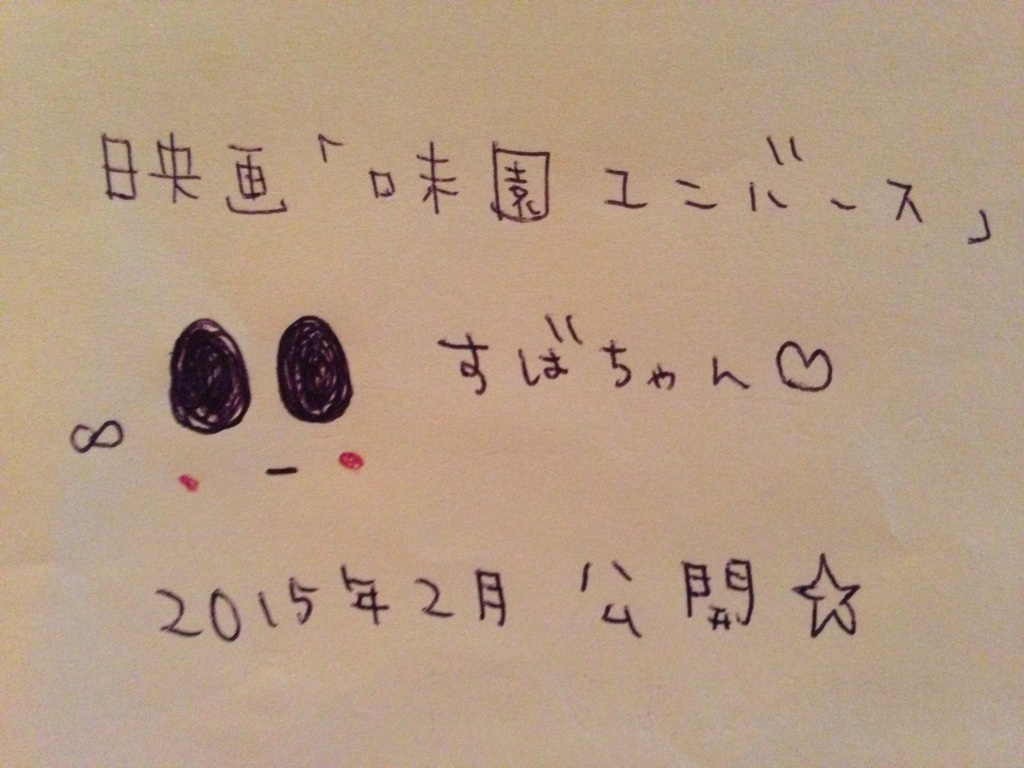 映画「味園ユニバース」
すばちゃん♡
∞
2015年2月公開☆